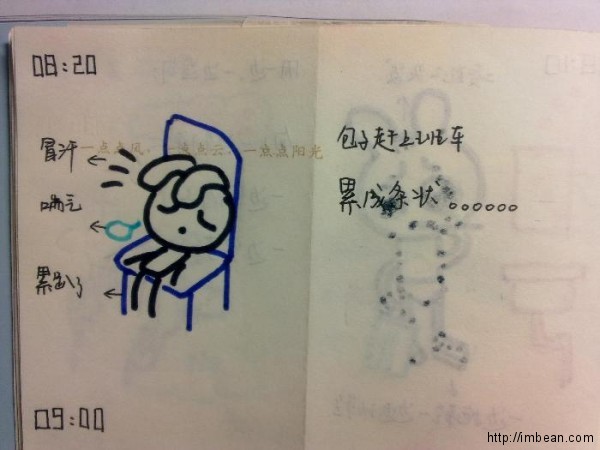 08:20
冒汗
一点点风，一点点云，一点点阳光
喘气
累趴了
09:00
包子赶上班车
累成条状。。。。。。
http://imbean.com